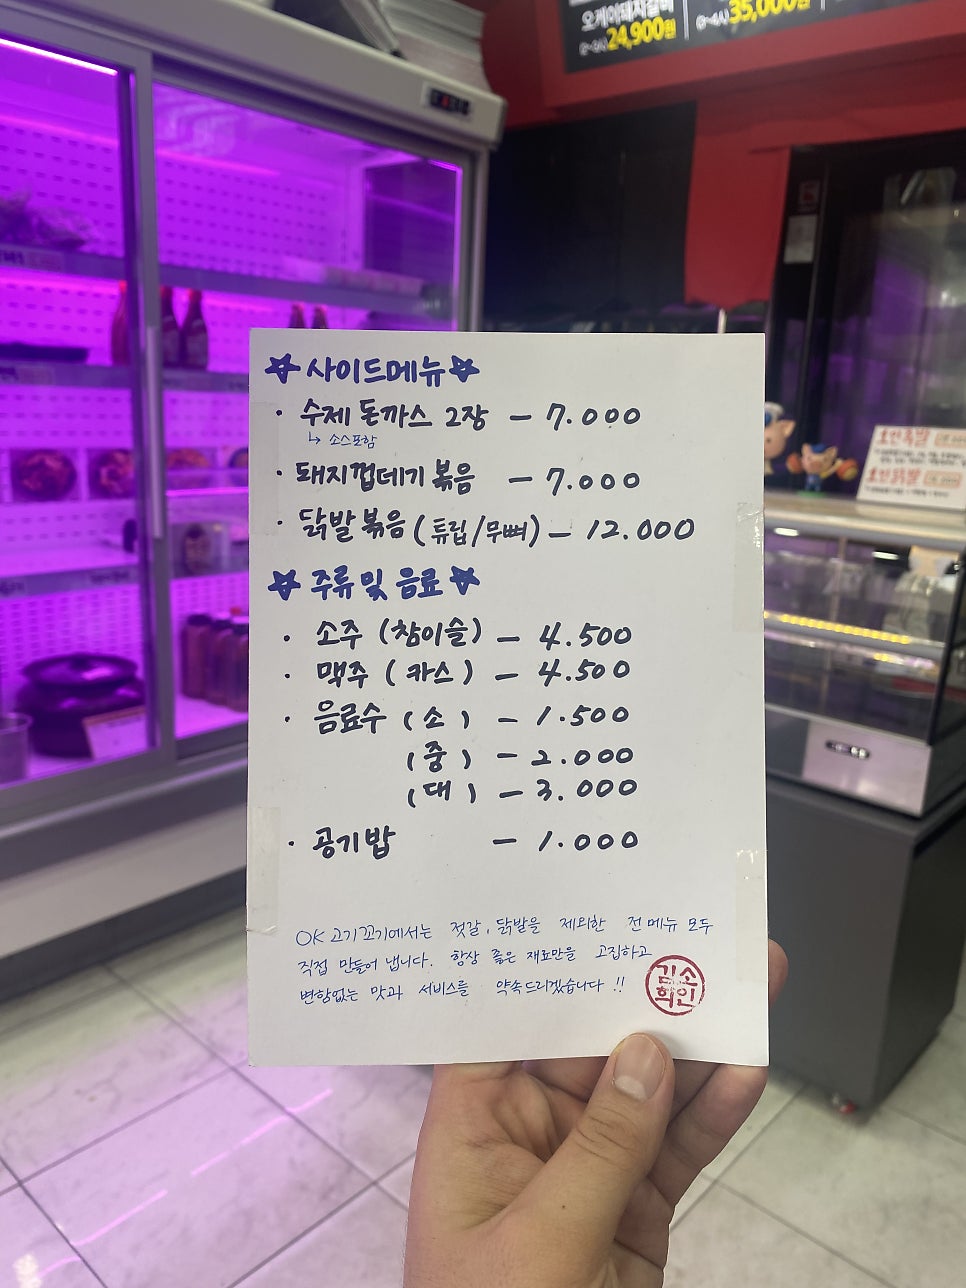 오케이돼지갈비
24,900원
35,000원
☆ 사이드메뉴 ☆
· 수제 돈까스 2장 — 7.000
↳ 소스포함
· 돼지껍데기 볶음 — 7.000
· 닭발 볶음 (튜립/무뼈) — 12.000
☆ 주류 및 음료 ☆
· 소주 (참이슬) — 4.500
· 맥주 ( 카스 ) — 4.500
· 음료수 ( 소 ) — 1.500
( 중 ) — 2.000
( 대 ) — 3.000
· 공기밥 — 1.000
OK 고기꼬기에서는 젓갈, 닭발을 제외한 전메뉴 모두
직접 만들어 냅니다. 항상 좋은 재료만을 고집하고
변함없는 맛과 서비스를 약속드리겠습니다 !!